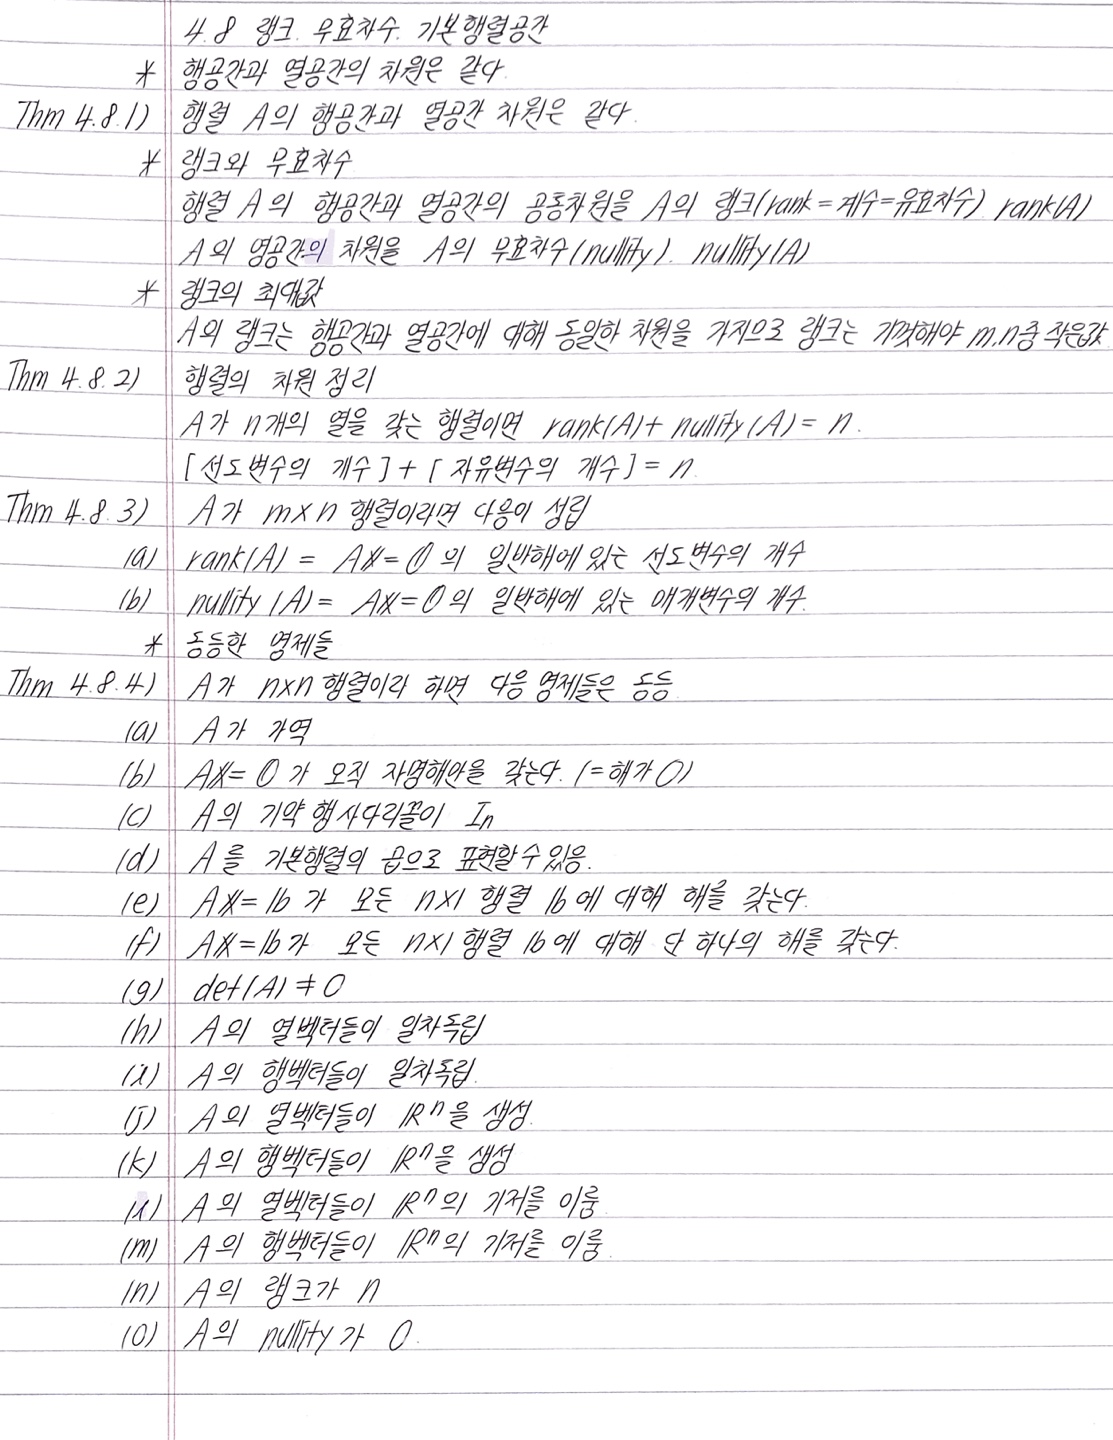 4.8 랭크. 무효차수. 기본행렬공간
* 행공간과 열공간의 차원은 같다.
Thm 4.8.1) 행렬 A의 행공간과 열공간 차원은 같다.
* 랭크와 무효차수
행렬 A의 행공간과 열공간의 공통차원을 A의 랭크(rank=계수=유효차수) rank(A)
A의 영공간의 차원을 A의 무효차수(nullity). nullity(A)
* 랭크의 최대값
A의 랭크는 행공간과 열공간에 대해 동일한 차원을 가지므로 랭크는 기껏해야 m,n중 작은값
Thm 4.8.2) 행렬의 차원 정리
A가 n개의 열을 갖는 행렬이면 rank(A)+ nullity(A)= n.
[선도변수의 개수]+[자유변수의 개수]= n.
Thm 4.8.3) A가 m×n 행렬이라면 다음이 성립
(a) rank(A) = Ax=0의 일반해에 있는 선도변수의 개수
(b) nullity(A)= Ax=0의 일반해에 있는 매개변수의 개수.
* 동등한 명제들
Thm 4.8.4) A가 n×n 행렬이라 하면 다음 명제들은 동등
(a) A가 가역
(b) Ax=0가 오직 자명해만을 갖는다. (=해가 0)
(c) A의 기약 행사다리꼴이 In
(d) A를 기본행렬의 곱으로 표현할 수 있음.
(e) Ax=b가 모든 n×1 행렬 b에 대해 해를 갖는다.
(f) Ax=b가 모든 n×1 행렬 b에 대해 단 하나의 해를 갖는다.
(g) det(A)≠0
(h) A의 열벡터들이 일차독립
(i) A의 행벡터들이 일차독립.
(j) A의 열벡터들이 ℝⁿ을 생성.
(k) A의 행벡터들이 ℝⁿ을 생성
(l) A의 열벡터들이 ℝⁿ의 기저를 이룸
(m) A의 행벡터들이 ℝⁿ의 기저를 이룸.
(n) A의 랭크가 n
(o) A의 nullity가 0.